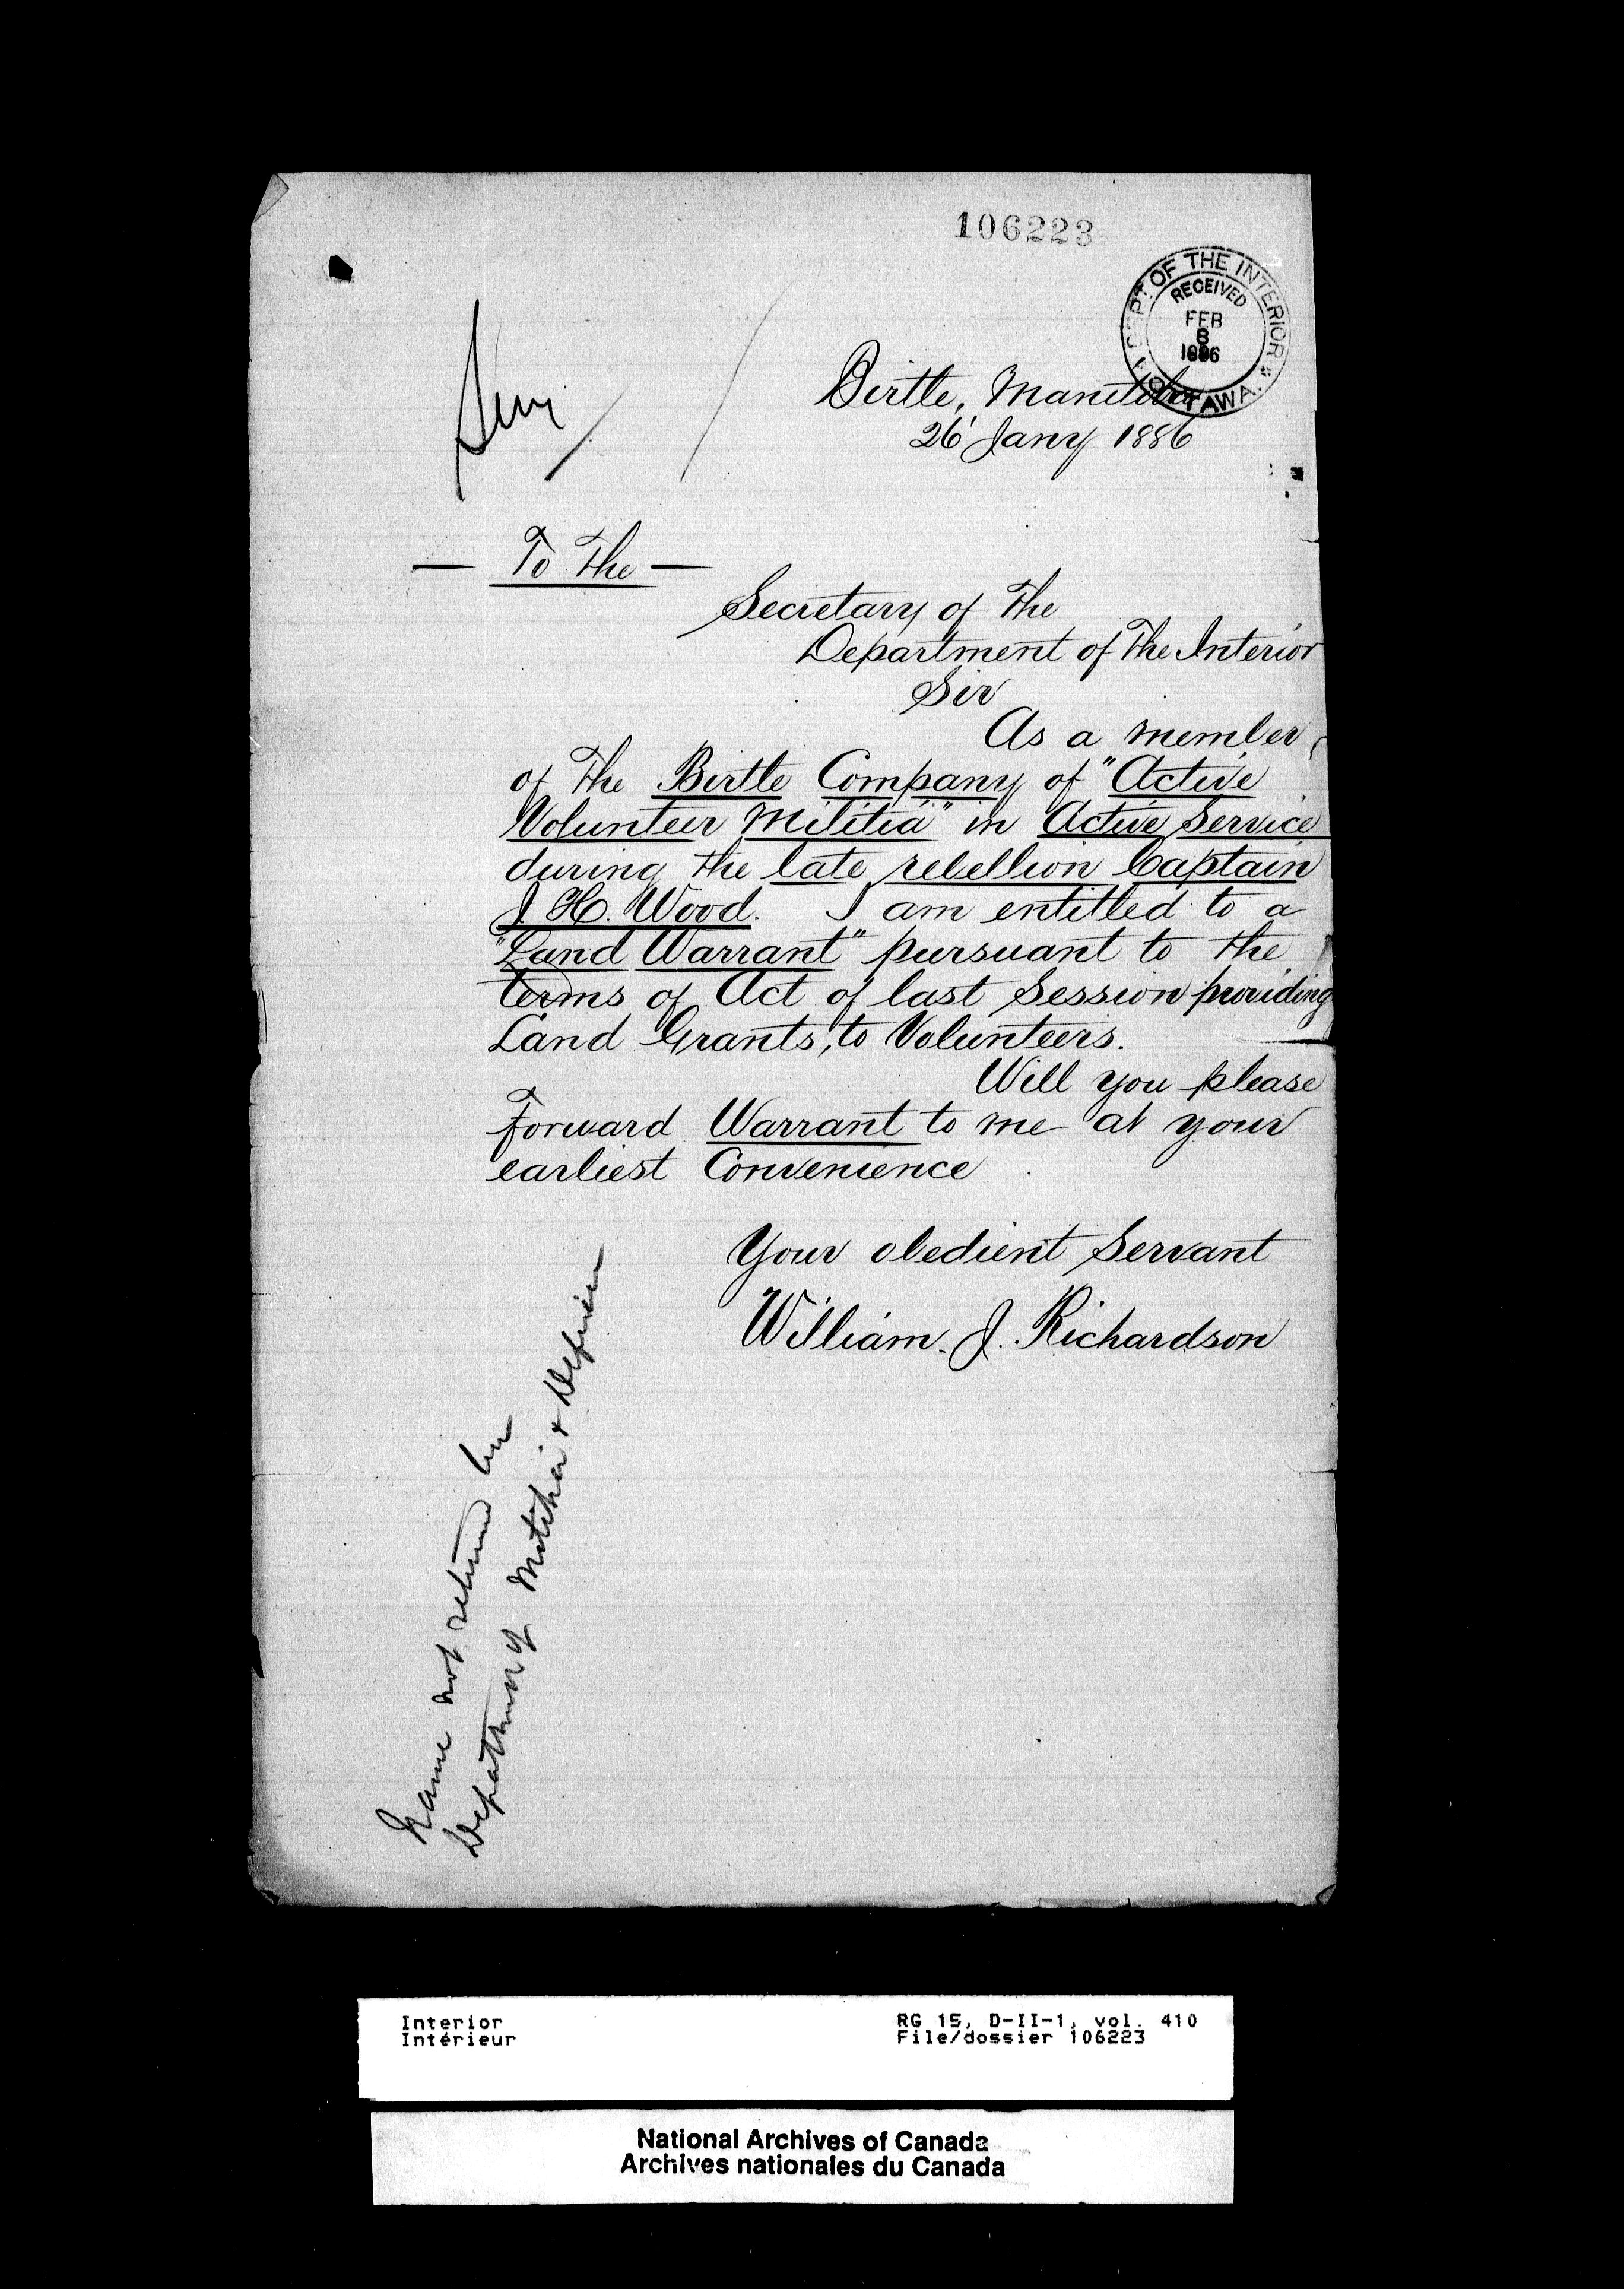 106223
DEPT. OF THE INTERIOR * OTTAWA.
RECEIVED
FEB
8
1886
Birtle, Manitoba
26 Jany 1886
— To The —
Secretary of The
Department of The Interior
Sir
As a member
of The Birtle Company of "Active
Volunteer Militia" in Active Service
during the late rebellion Captain
J. H. Wood. I am entitled to a
"Land Warrant" pursuant to the
terms of Act of last Session providing
Land Grants, to Volunteers.
Will you please
forward Warrant to me at your
earliest Convenience
Your obedient Servant
William. J. Richardson
Name not returned by
Department of Militia & Defence
Interior
Intérieur
RG 15, D-II-1, vol. 410
File/dossier 106223
National Archives of Canada
Archives nationales du Canada